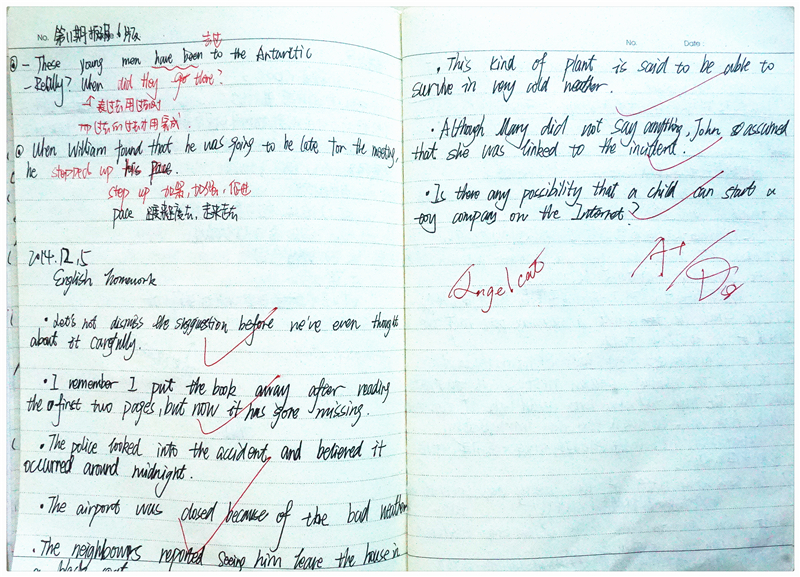 No. 第11期报纸 6版
言过
- These young men have been to the Antarctic
- Really? When did they go there?
→ 表过去用过去时
As When William found that he was going to be late for the meeting,
he stepped up his pace.
step up 加大,
pace
2014.12.5
English homework
· Let's not dismiss the sugguestion before we've even thought
about it carefully.
· I remember I put the book away after reading
the first two pages, but now it has gone missing.
· The police looked into the accident and believed it
occurred around midnight.
· The airport was closed because of the bad weather
· The neighbours reported seeing him leave the house in
No. Date:
· This kind of plant is said to be able to
survive in very cold weather.
· Although Mary did not say anything, John assumed
that she was linked to the incident.
· Is there any possibility that a child can start a
toy company on the Internet?
Angelcat
A+/D